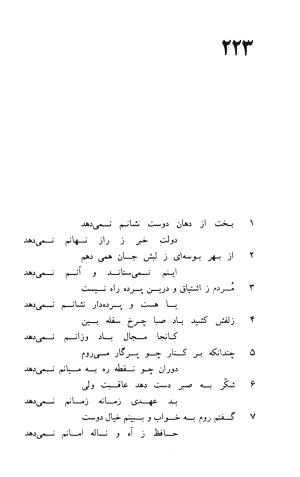 ۲۲۳
۱ بخت از دهان دوست نشانم نمی‌دهد
دولت خبر ز راز نهانم نمی‌دهد
۲ از بهر بوسه‌ای ز لبش جان همی دهم
اینم نمی‌ستاند و آنم نمی‌دهد
۳ مُردم ز اشتیاق و درین پرده راه نیست
یا هست و پرده‌دار نشانم نمی‌دهد
۴ زلفش کشید باد صبا چرخ سفله بین
کانجا مجال باد وزانم نمی‌دهد
۵ چندانکه بر کنار چو پرگار می‌روم
دوران چو نقطه ره به میانم نمی‌دهد
۶ شکّر به صبر دست دهد عاقبت ولی
بد عهدی زمانه زمانم نمی‌دهد
۷ گفتم روم به خواب و ببینم خیال دوست
حافظ ز آه و ناله امانم نمی‌دهد